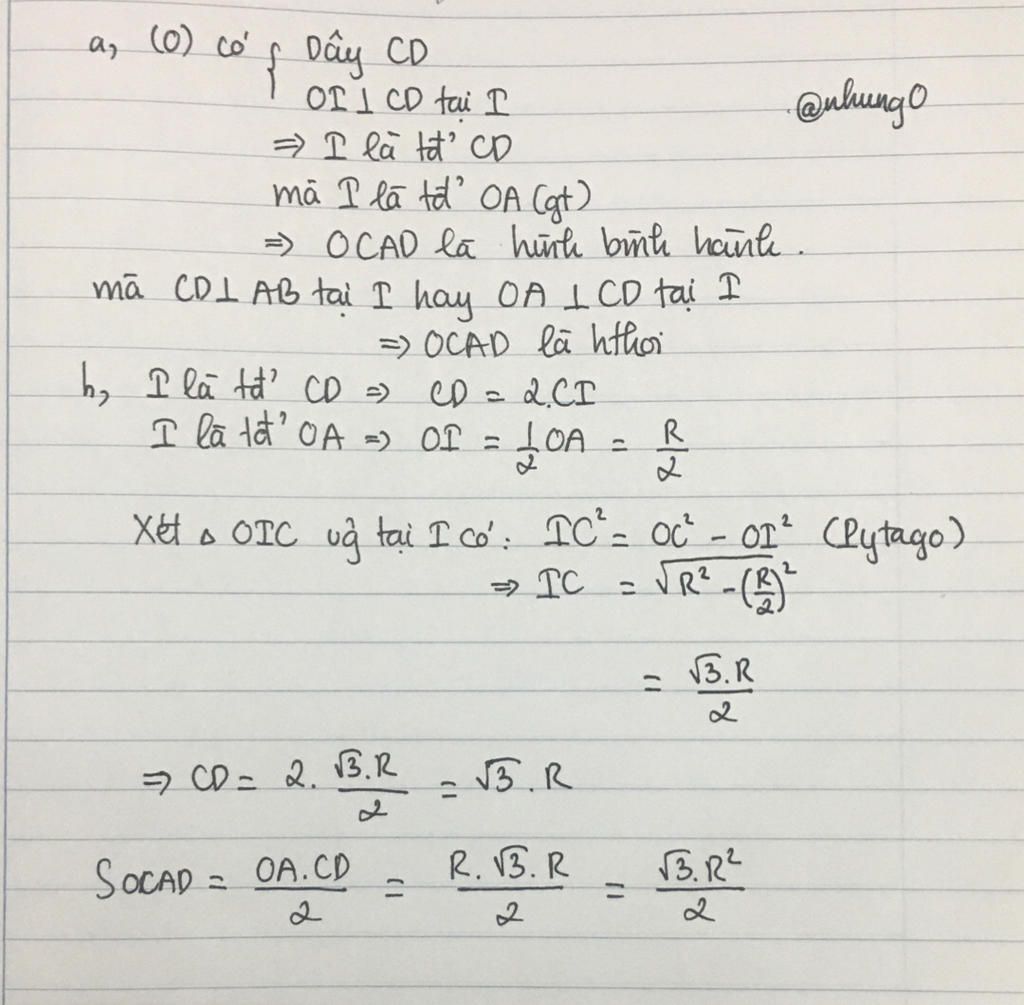 a, (O) có { Dây CD
OI ⊥ CD tại I
@nhung0
=> I là tđ' CD
mà I là tđ' OA (gt)
=> OCAD là hình bình hành.
mà CD ⊥ AB tại I hay OA ⊥ CD tại I
=> OCAD là hthoi
b, I là tđ' CD => CD = 2.CI
I là tđ' OA => OI = 1/2 OA = R/2
Xét △ OIC vg̉ tại I có: IC² = OC² - OI² (Pytago)
=> IC = √(R² - (R/2)²)
= √3.R/2
=> CD = 2. √3.R/2 = √3.R
SOCAD = OA.CD/2 = R.√3.R/2 = √3.R²/2